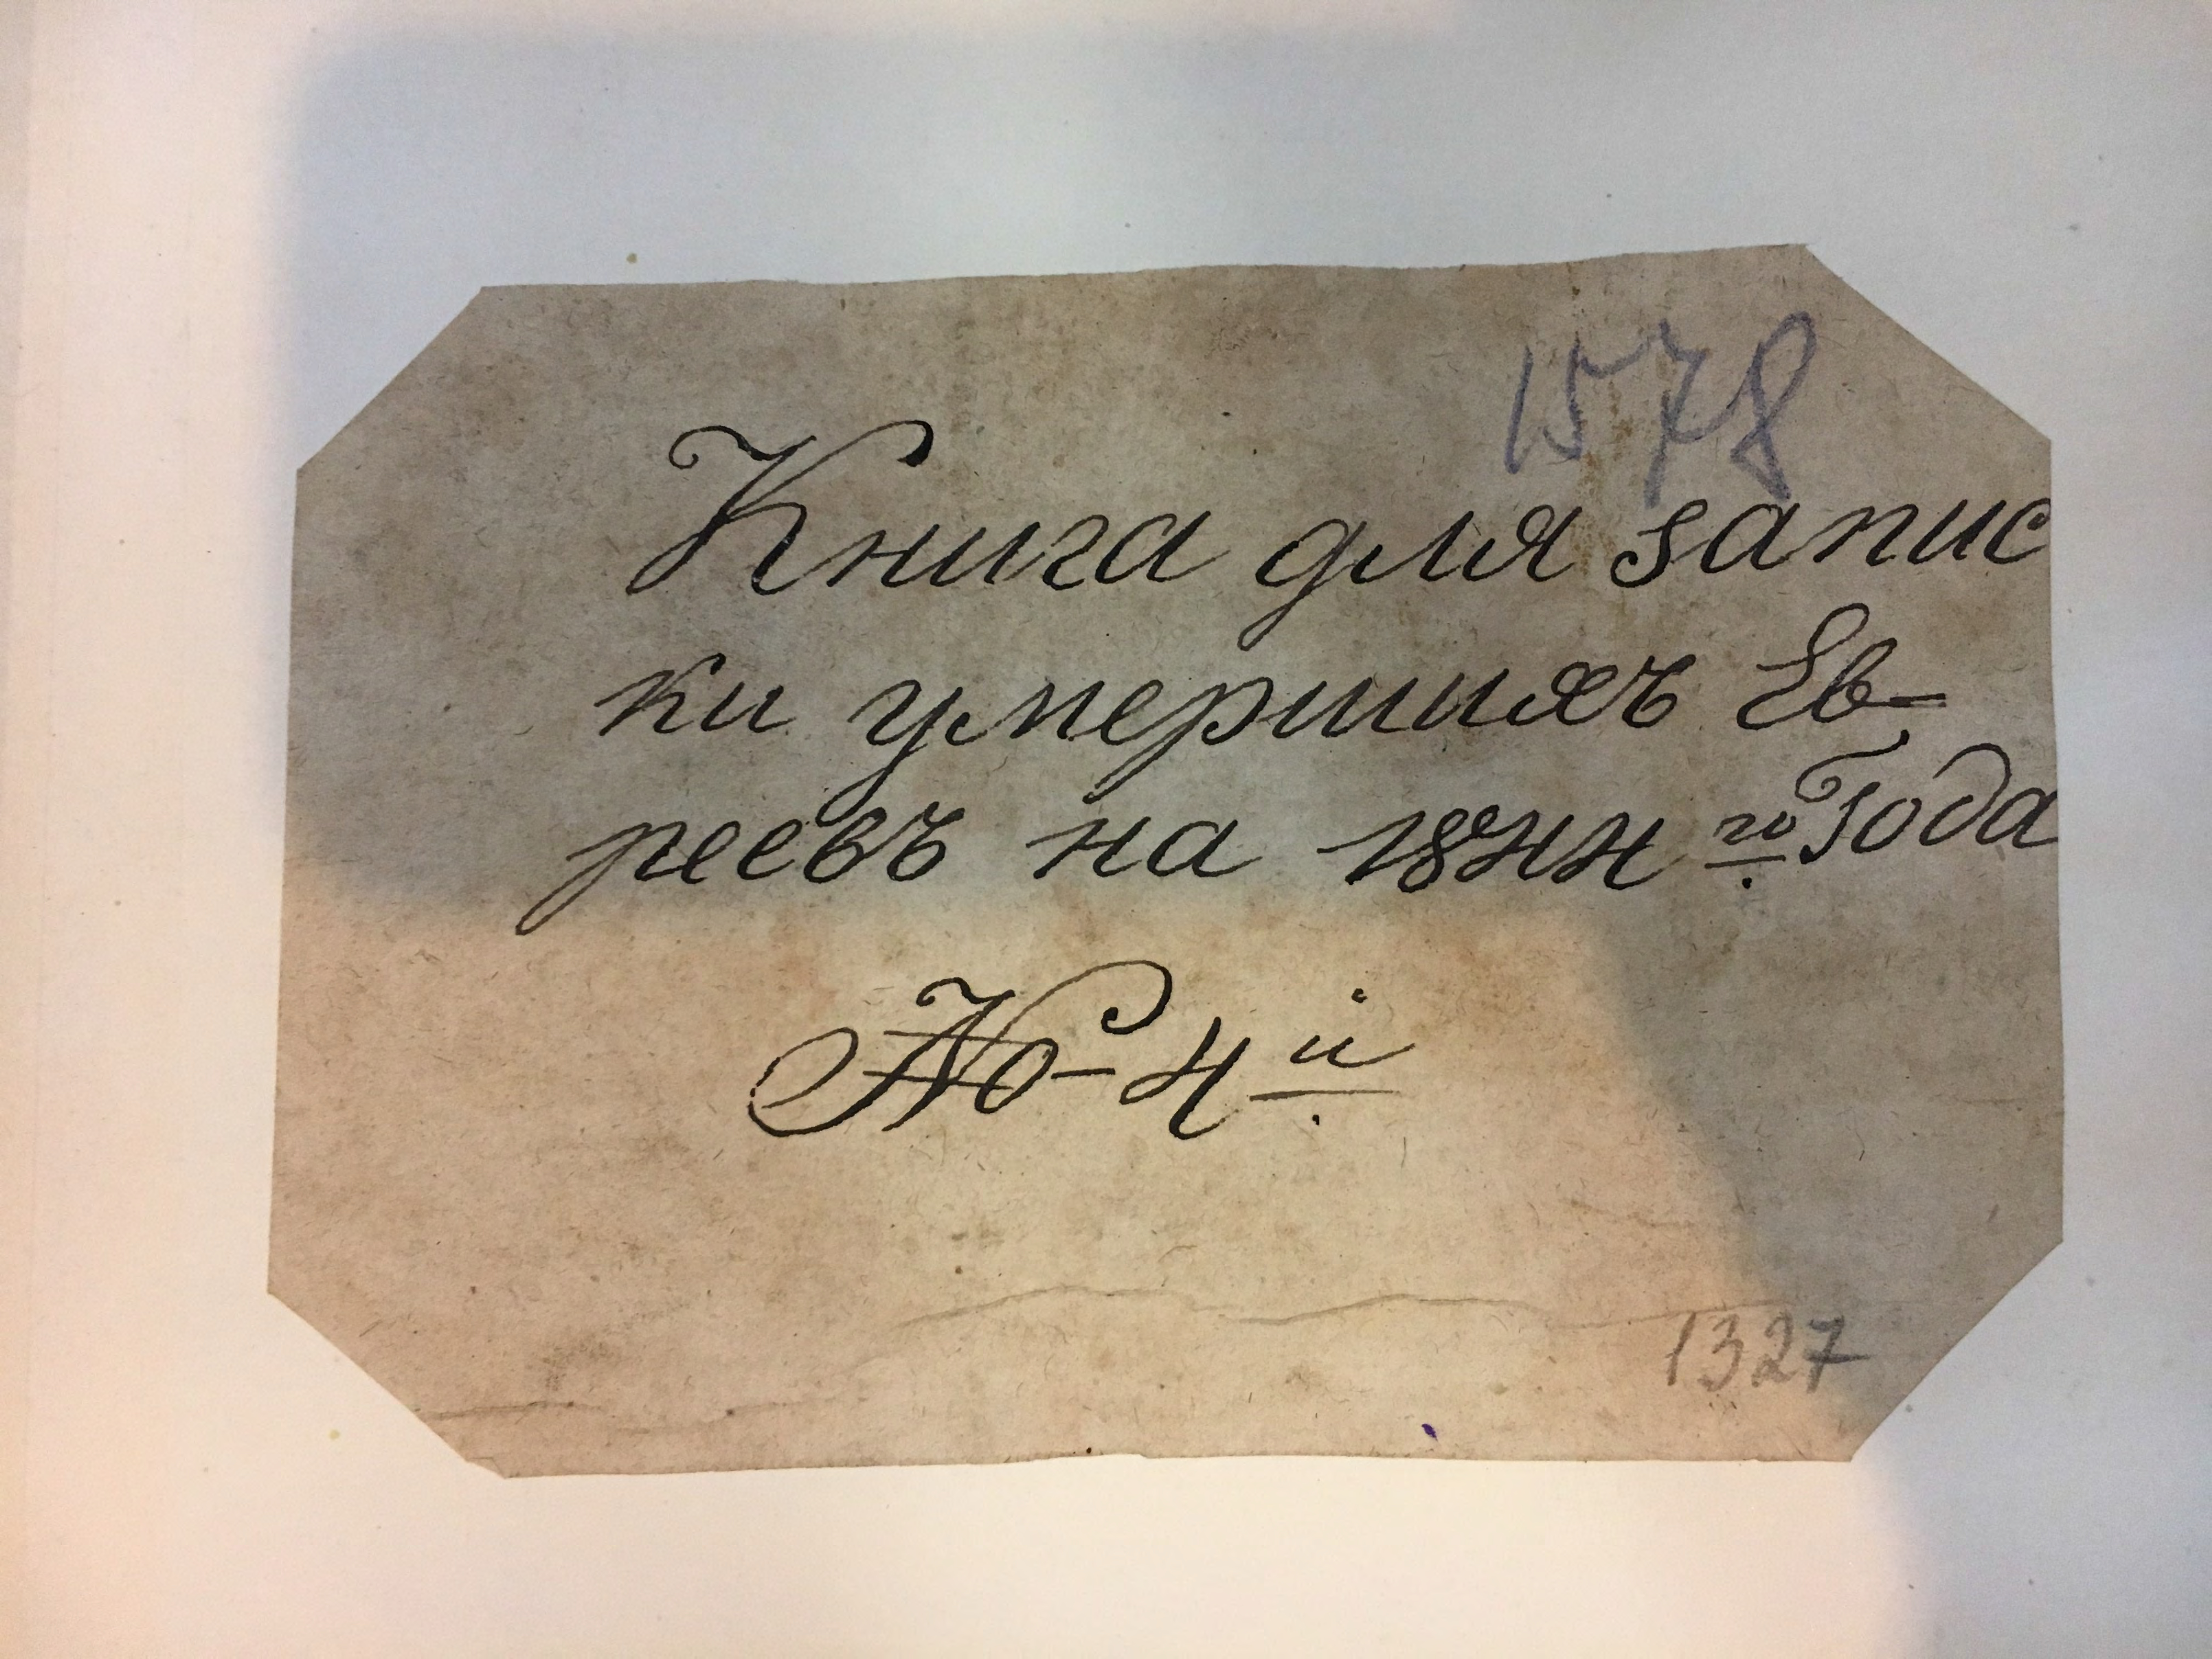 1578
Книга для запис
ки умершихъ Ев-
реевъ на 1844го Года
№ 4й
1327